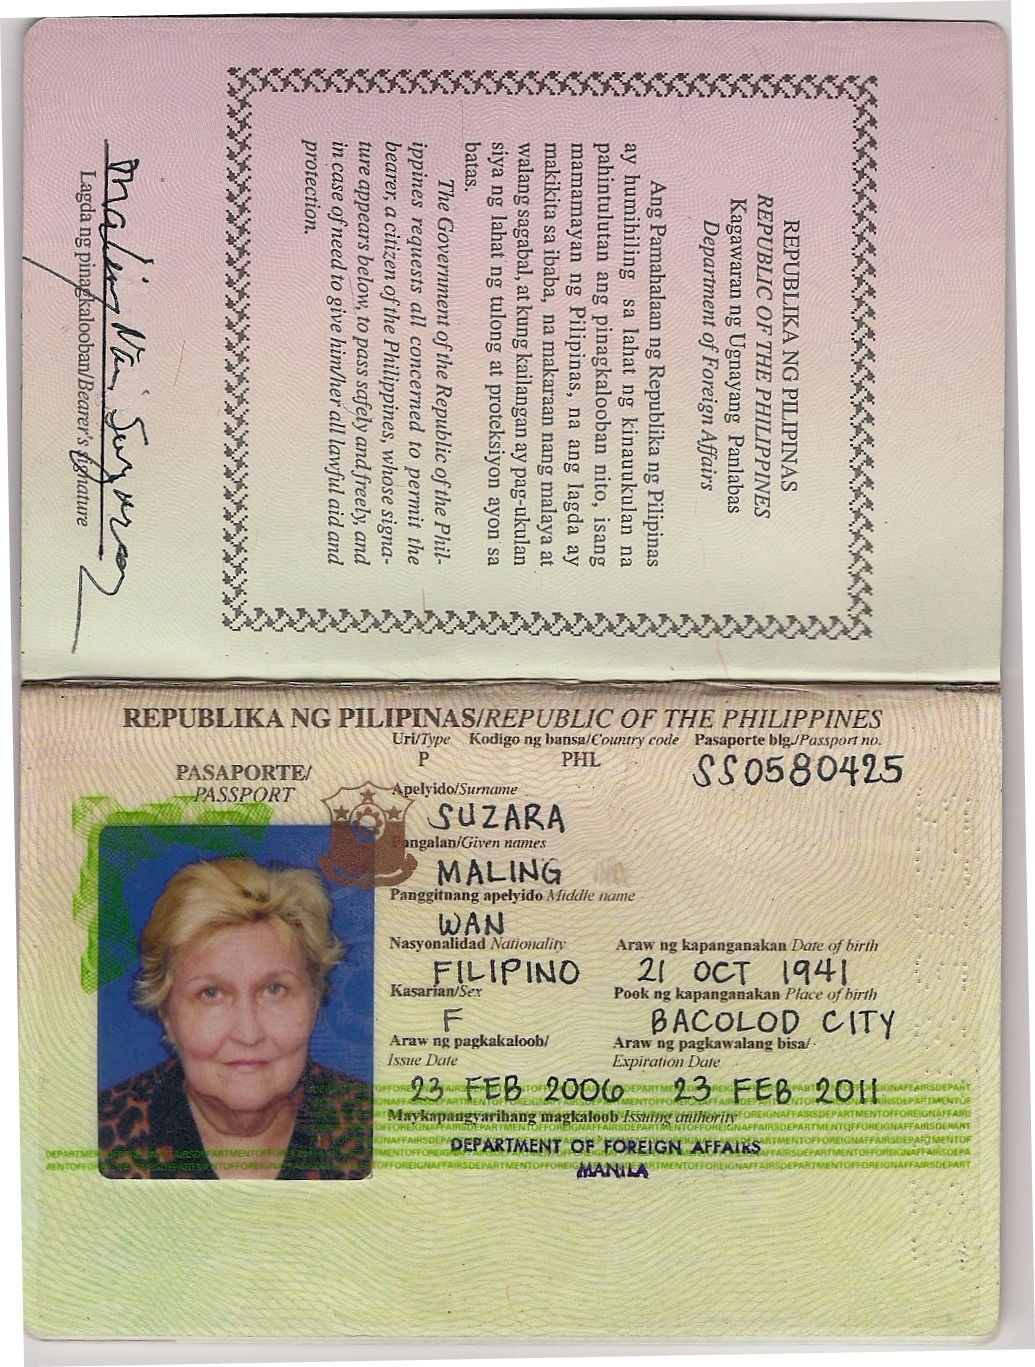 REPUBLIKA NG PILIPINAS
REPUBLIC OF THE PHILIPPINES
Kagawaran ng Ugnayang Panlabas
Department of Foreign Affairs
Ang Pamahalaan ng Republika ng Pilipinas
ay humihiling sa lahat ng kinauukulan na
pahintulutan ang pinagkalooban nito, isang
mamamayan ng Pilipinas, na ang lagda ay
makikita sa ibaba, na makaraan nang malaya at
walang sagabal, at kung kailangan ay pag-ukulan
siya ng lahat ng tulong at proteksiyon ayon sa
batas.
The Government of the Republic of the Phil-
ippines requests all concerned to permit the
bearer, a citizen of the Philippines, whose signa-
ture appears below, to pass safely and freely, and
in case of need to give him/her all lawful aid and
protection.
Maling Wan Suzara
Lagda ng pinagkalooban/Bearer's signature
REPUBLIKA NG PILIPINAS/REPUBLIC OF THE PHILIPPINES
Uri/Type Kodigo ng bansa/Country code Pasaporte blg./Passport no.
P PHL SS0580425
PASAPORTE/
PASSPORT
Apelyido/Surname
SUZARA
Pangalan/Given names
MALING
Panggitnang apelyido Middle name
WAN
Nasyonalidad Nationality Araw ng kapanganakan Date of birth
FILIPINO 21 OCT 1941
Kasarian/Sex Pook ng kapanganakan Place of birth
F BACOLOD CITY
Araw ng pagkakaloob/ Araw ng pagkawalang bisa/
Issue Date Expiration Date
23 FEB 2006 23 FEB 2011
Maykapangyarihang magkaloob Issuing authority
DEPARTMENT OF FOREIGN AFFAIRS
MANILA